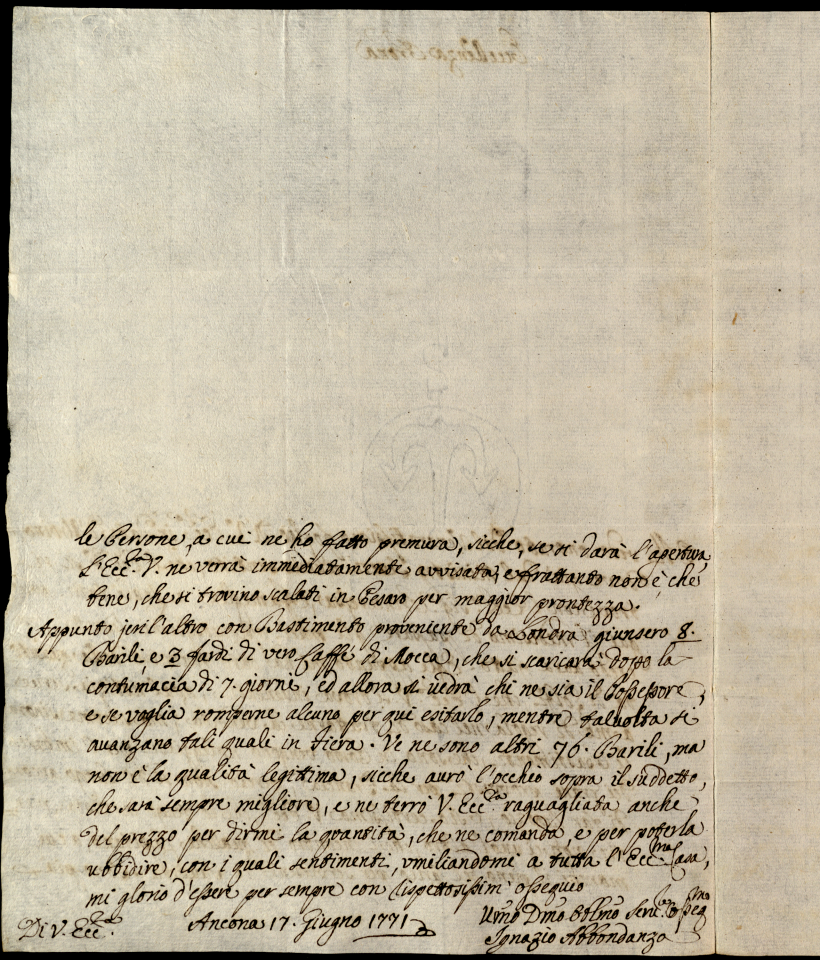 le Persone, a cui ne ho fatto premura, sicche, se si darà l'apertura
l'Ecc.za V. ne verrà immediatamente avvisata, e frattanto non è che
bene, che si trovino scalati in Pesaro per maggior prontezza.
Appunto jeri l'altro con Bastimento proveniente da Londra giunsero 8.
Barili, e 3 fardi di vero Caffè di Mocca, che si scaricarà doppo la
contumacia di 7. giorni, ed allora si vedrà chi ne sia il Possessore,
e se voglia romperne alcuno per qui esitarlo, mentre talvolta si
avanzano tali quali in Fiera. Ve ne sono altri 76. Barili, ma
non è la qualità legittima, sicche aurò l'occhio sopra il suddetto,
che sarà sempre migliore, e ne terrò V. Ecc.za raguagliata anche
del prezzo per dirmi la quantità, che ne comanda, e per poterla
ubbidire, con i quali sentimenti, umiliandomi a tutta l'Ecc.ma Casa,
mi glorio d'essere per sempre con rispettosissim' ossequio
Di V. Ecc.za Ancona 17. Giugno 1771
Umo Dmo Oblmo
Ignazio Abbondanza